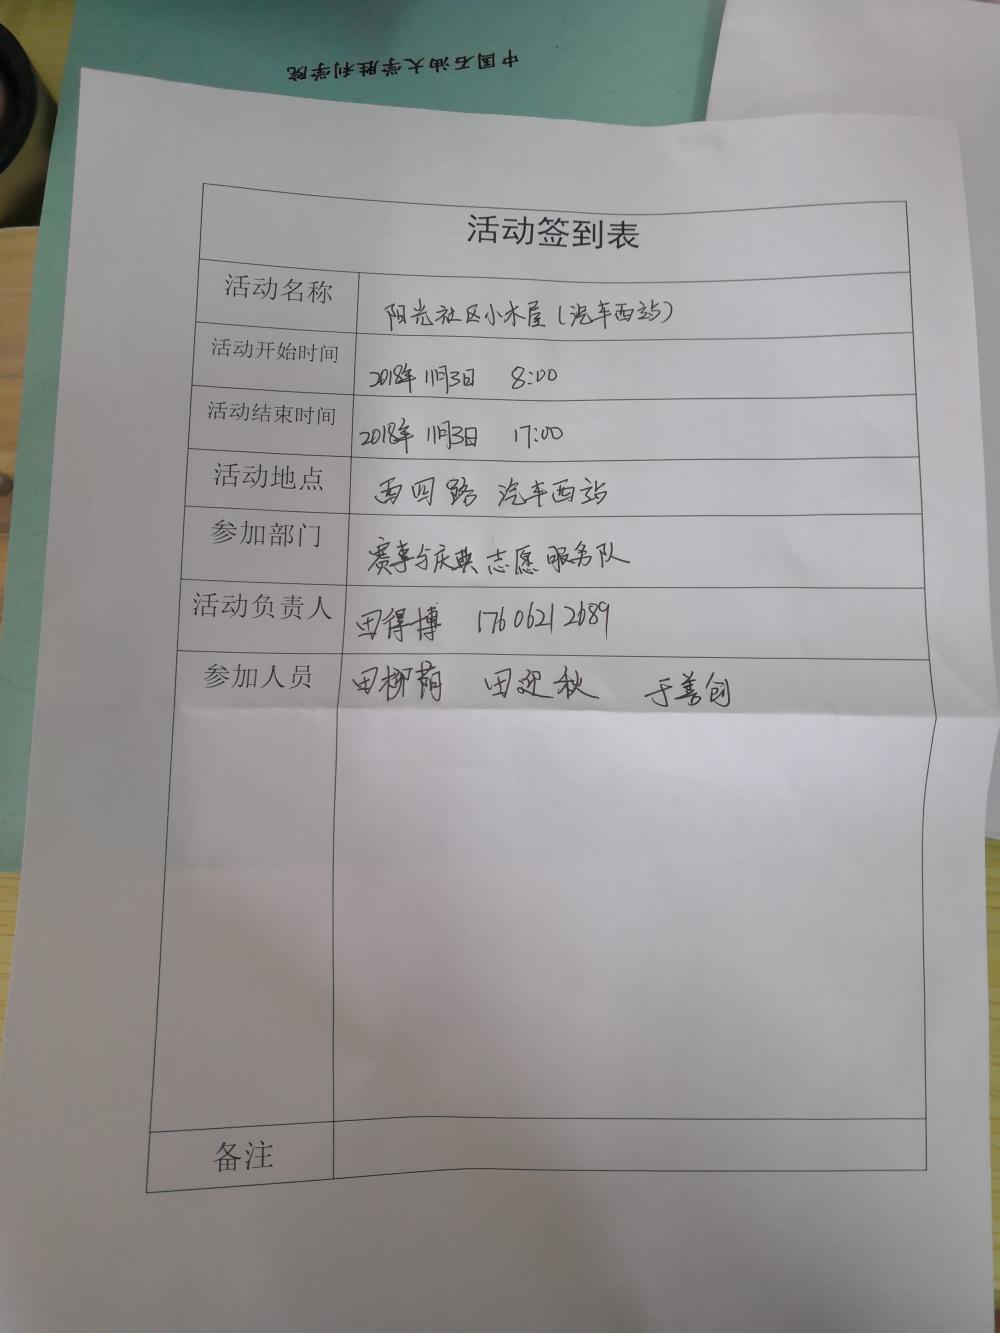 中国石油大学胜利学院
活动签到表
活动名称 阳光社区小木屋（汽车西站）
活动开始时间 2018年11月3日 8:00
活动结束时间 2018年11月3日 17:00
活动地点 西四路 汽车西站
参加部门 赛事与庆典志愿服务队
活动负责人 田得博 17606212689
参加人员 田柳荫 田迎秋 于善创
备注